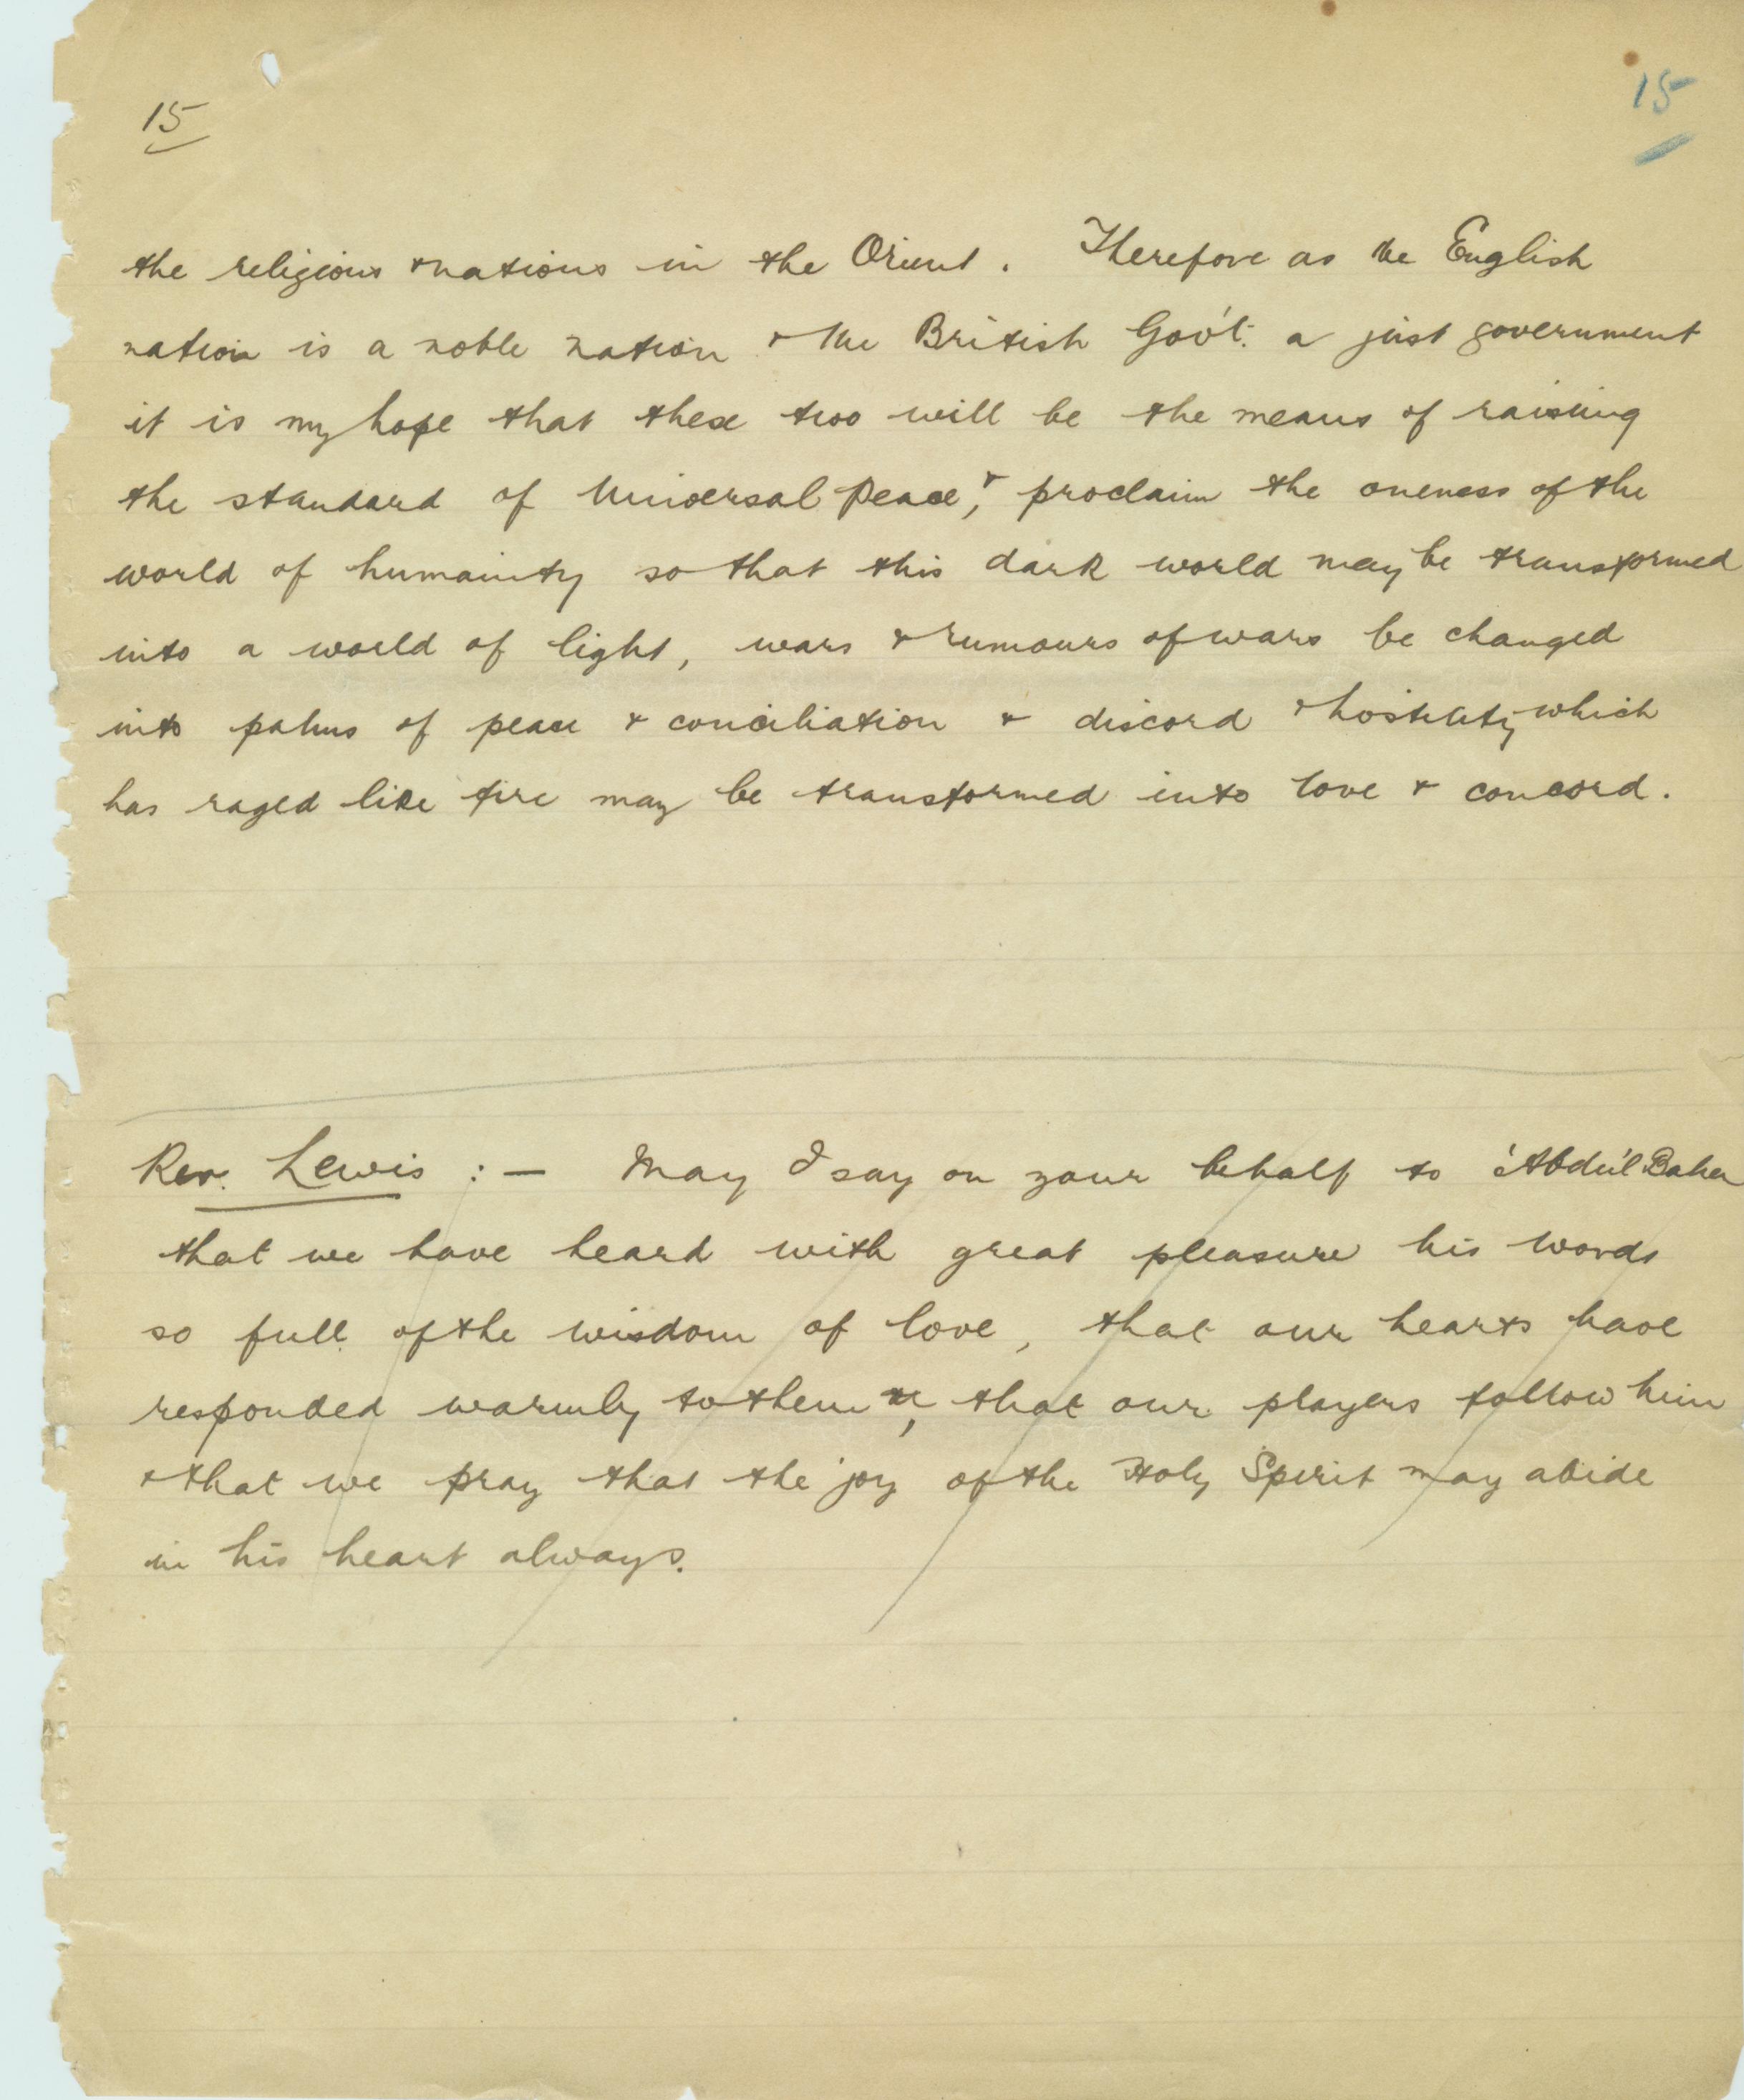 15
15
the religious & nations in the Orient. Therefore as the English
nation is a noble nation & the British Gov't. a just government
it is my hope that these two will be the means of raising
the standard of Universal Peace, & proclaim the oneness of the
world of humainty so that this dark world may be transformed
into a world of light, wars & rumours of wars be changed
into palms of peace & conciliation & discord & hostility which
has raged like fire may be transformed into love & concord.
Rev. Lewis :— May I say on your behalf to 'Abdu'l Baha
that we have heard with great pleasure his words
so full of the wisdom of love, that our hearts have
responded warmly to them, that our players follow him
& that we pray that the joy of the Holy Spirit may abide
in his heart always.